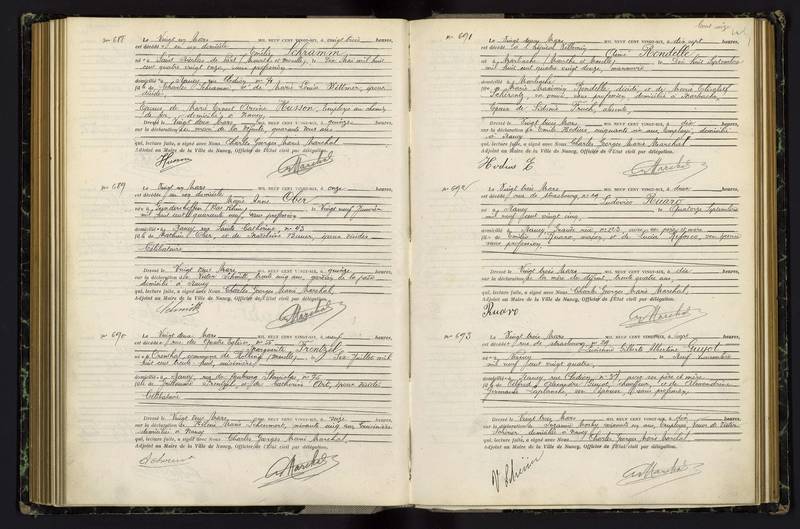 N° 688
Le Vingt un Mars MIL NEUF CENT VINGT-SIX, à vingt trois heures,
est décédée en son domicile
Emilie Schramm
née à Saint Nicolas de Port (Meurthe et Moselle), le Dix Mai mil huit
cent quatre vingt onze, sans profession
domiciliée à Nancy, rue
fille de Charles Schramm, et de Marie Louise Wittmer, époux
décédés
Epouse de Marie Ernest Husson, employé au chemin
de fer, domicilié à Nancy
Dressé le Vingt deux Mars MIL NEUF CENT VINGT-SIX, à quinze heures,
sur la déclaration du mari de la défunte, quarante trois ans
qui, lecture faite, a signé avec Nous Charles Georges Marie Marchal
Adjoint au Maire de la Ville de Nancy, Officier de l'État civil par délégation.
Husson
Marchal
N° 689
Le Vingt un Mars MIL NEUF CENT VINGT-SIX, à onze heures,
est décédée en son domicile
Marie Anne Ober
née à (Bas Rhin), le Vingt neuf Janvier
mil huit cent quarante neuf, sans profession
domiciliée à Nancy rue Sainte Catherine n° 43
fille de Mathieu Ober, et de Madeleine époux décédés
Célibataire
Dressé le Vingt deux Mars MIL NEUF CENT VINGT-SIX, à quinze heures,
sur la déclaration de Victor Schmitt, trente cinq ans, gardien de la paix
domicilié à Nancy
qui, lecture faite, a signé avec Nous Charles Georges Marie Marchal,
Adjoint au Maire de la Ville de Nancy, Officier de l'État civil par délégation.
Schmitt
Marchal
N° 690
Le Vingt deux Mars MIL NEUF CENT VINGT-SIX, à neuf heures,
est décédée, rue des Quatre Eglises, n° 58
Marguerite Frentzel
née à commune de (Moselle), le Six Juillet mil
huit cent trente huit,
domiciliée à Nancy rue du faubourg Stanislas n° 75
fille de Guillaume Frentzel, et de Catherine époux décédés
Célibataire
Dressé le Vingt trois Mars MIL NEUF CENT VINGT-SIX, à onze heures,
sur la déclaration de Hélène Marie soixante cinq ans
domiciliée à Nancy
qui, lecture faite, a signé avec Nous Charles Georges Marie Marchal,
Adjoint au Maire de la Ville de Nancy, Officier de l'État civil par délégation.
Marchal
N° 691
Le Vingt deux Mars MIL NEUF CENT VINGT-SIX, à dix sept heures,
est décédé à l'hôpital Villemin
Aimé Rondelle
né à Marbache (Meurthe et Moselle), le Dix huit Septembre
mil huit cent quatre vingt douze, manœuvre
domicilié à Marbache
fils de Marie Maximin Rondelle, décédé, et de Marie Elisabeth
sa veuve, sans profession, domiciliée à Marbache,
Epoux de Sidonie absente
Dressé le Vingt trois Mars MIL NEUF CENT VINGT-SIX, à dix heures,
sur la déclaration de Emile Hodius, cinquante six ans, employé, domicilié
à Nancy
qui, lecture faite, a signé avec Nous Charles Georges Marie Marchal
Adjoint au Maire de la Ville de Nancy, Officier de l'État civil par délégation.
Hodius E
Marchal
N° 692
Le Vingt trois Mars MIL NEUF CENT VINGT-SIX, à deux heures,
est décédé, rue de Strasbourg n° 29
Ludovic Ruaro
né à Nancy, le Quatorze Septembre
mil neuf cent vingt cinq,
domicilié à Nancy, avec ses père et mère
fils de Emilio Ruaro, maçon, et de Lucia son épouse
sans profession
Dressé le Vingt trois Mars MIL NEUF CENT VINGT-SIX, à dix heures,
sur la déclaration de la mère du défunt, trente quatre ans,
qui, lecture faite, a signé avec Nous Charles Georges Marie Marchal,
Adjoint au Maire de la Ville de Nancy, Officier de l'État civil par délégation.
Ruaro
Marchal
N° 693
Le Vingt trois Mars MIL NEUF CENT VINGT-SIX, à sept heures,
est décédée, rue de Strasbourg, n° 29
Lucienne Gilberte Albertine Guyot
née à Nancy, le Neuf Novembre
mil neuf cent vingt quatre,
domiciliée à Nancy rue n° 37 avec ses père et mère
fille de Alfred Alexandre Guyot, chauffeur, et de Alexandrine
Germaine son épouse, sans profession
Dressé le Vingt trois Mars MIL NEUF CENT VINGT-SIX, à dix heures,
sur la déclaration de Suzanne soixante un ans, employée, veuve de Victor
domiciliée à Nancy
qui, lecture faite, a signé avec Nous Charles Georges Marie Marchal
Adjoint au Maire de la Ville de Nancy, Officier de l'État civil par délégation.
Marchal